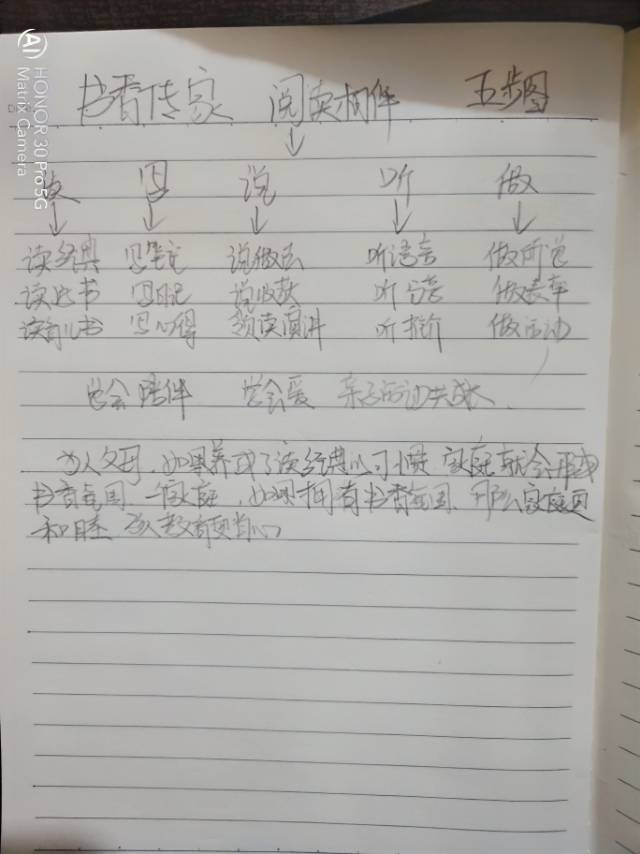 HONOR 30 Pro 5G
Matrix Camera
书香传家 阅读相伴 五步图
读 写 说 听 做
读经典 写笔记 说做法 听语音 做所说
读此书 写日记 说收获 听 做表率
读育儿书 写心得 领读演讲 听评价 做活动
学会陪伴 学会爱 亲子活动共成长
为人父母,如果养成了读经典的习惯 家庭就会形成
书香氛围 一家庭,如果拥有书香氛围,那么家庭更
和睦